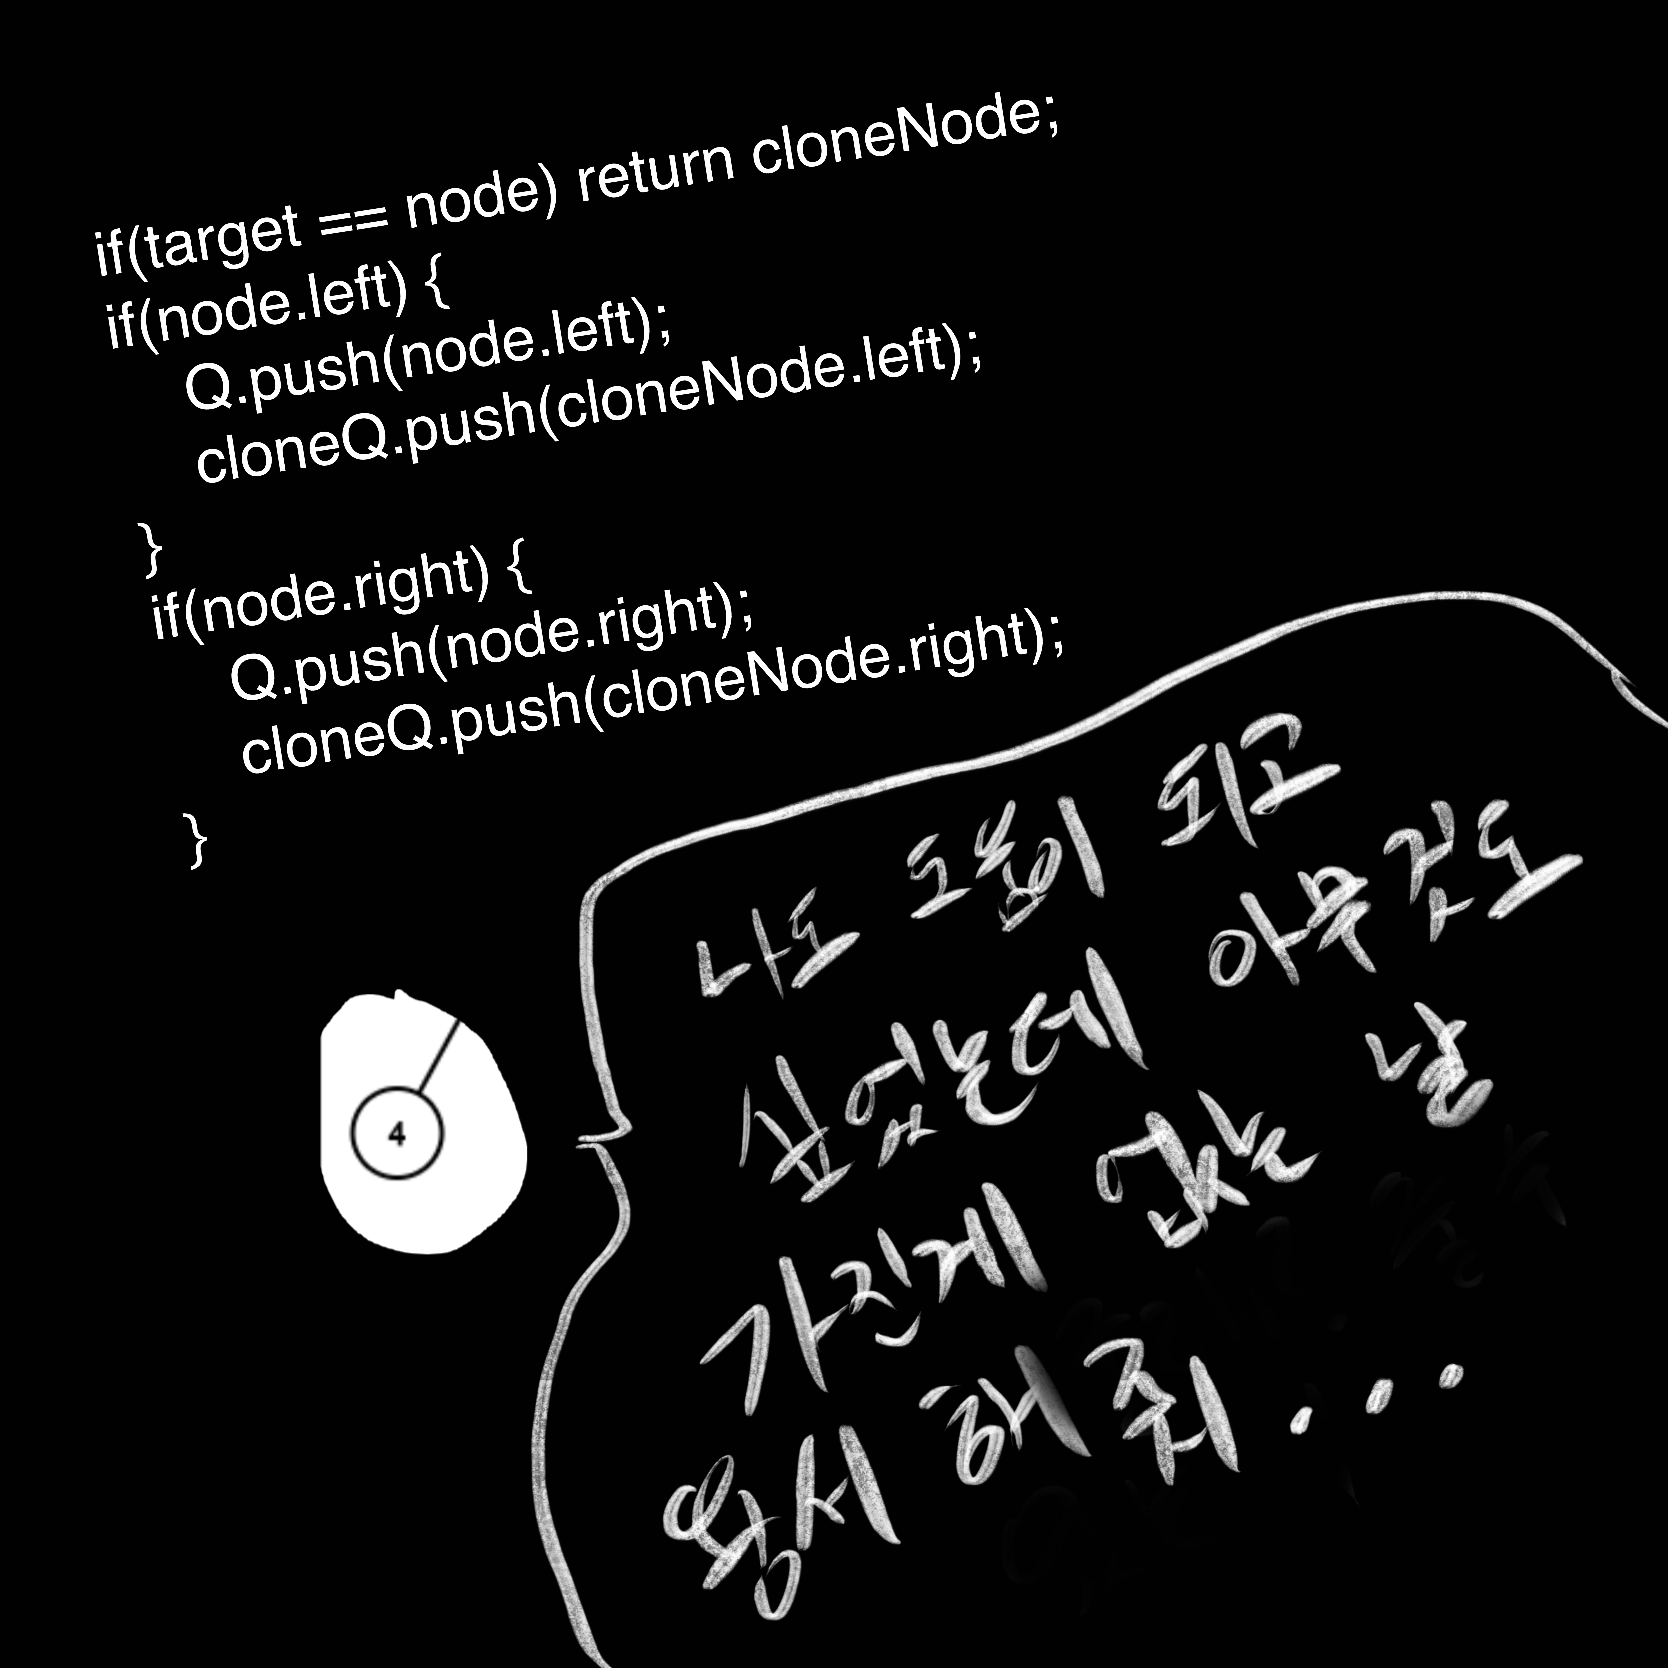 if(target == node) return cloneNode;
if(node.left) {
Q.push(node.left);
cloneQ.push(cloneNode.left);
}
if(node.right) {
Q.push(node.right);
cloneQ.push(cloneNode.right);
}
나도 도움이 되고
싶었는데 아무것도
가진게 없는 날
용서해줘...
4